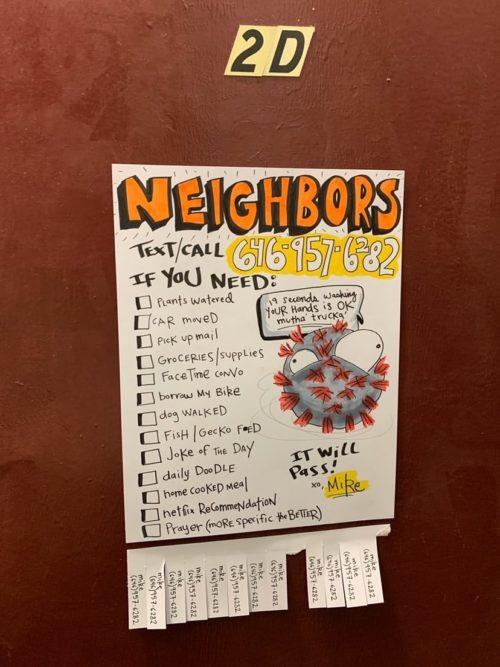 2D
NEIGHBORS
TEXT/CALL 646-957-6282
IF YOU NEED:
Plants watered
CAR moveD
Pick up mail
GROCERIES/SUPPLIES
FaceTime Convo
borrow My Bike
dog WALKED
FISH/Gecko FED
Joke of THE DAY
daily DooDLE
home cooked meal
netflix RecommenDATION
Prayer (more specific the BETTER)
19 seconds washing
YOUR Hands is OK
mutha' trucka!
IT WILL
PASS!
xo, Mike
mike
(646)957-6282
mike
(646)957-6282
mike
(646)957-6282
mike
(646)957-6282
mike
(646)957-6282
mike
(646)957-6282
mike
(646)957-6282
mike
(646)957-6282
mike
(646)957-6282
mike
(646)957-6282
mike
(646)957-6282
mike
(646)957-6282